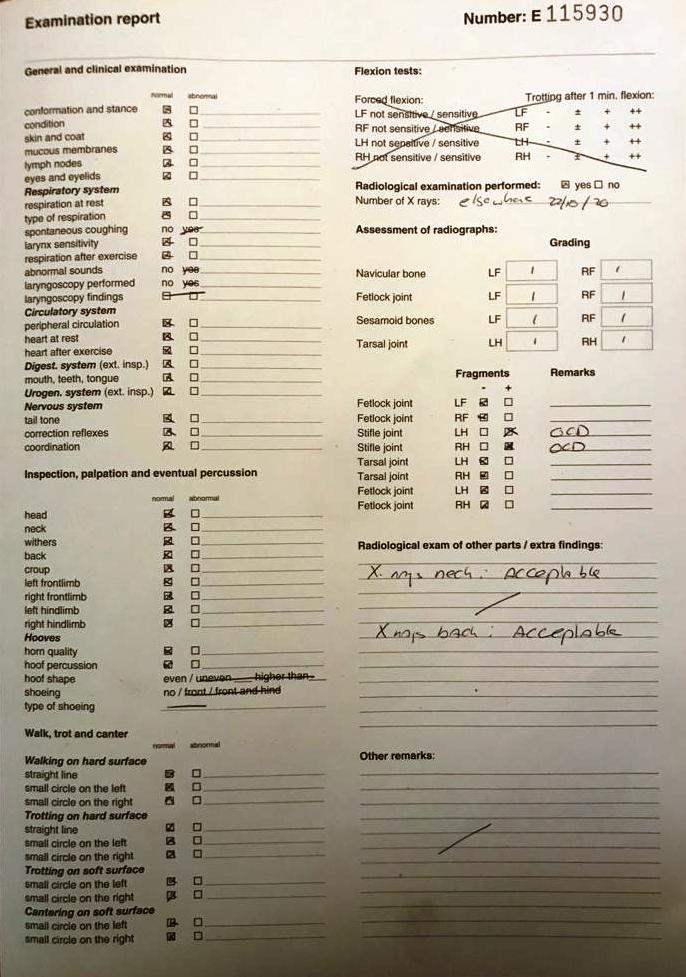 Examination report
Number: E 115930
General and clinical examination
normal abnormal
conformation and stance
condition
skin and coat
mucous membranes
lymph nodes
eyes and eyelids
Respiratory system
respiration at rest
type of respiration
spontaneous coughing no yes
larynx sensitivity
respiration after exercise
abnormal sounds no yes
laryngoscopy performed no yes
laryngoscopy findings
Circulatory system
peripheral circulation
heart at rest
heart after exercise
Digest. system (ext. insp.)
mouth, teeth, tongue
Urogen. system (ext. insp.)
Nervous system
tail tone
correction reflexes
coordination
Inspection, palpation and eventual percussion
normal abnormal
head
neck
withers
back
croup
left frontlimb
right frontlimb
left hindlimb
right hindlimb
Hooves
horn quality
hoof percussion
hoof shape even / uneven higher than
shoeing no / front / front and hind
type of shoeing
Walk, trot and canter
normal abnormal
Walking on hard surface
straight line
small circle on the left
small circle on the right
Trotting on hard surface
straight line
small circle on the left
small circle on the right
Trotting on soft surface
small circle on the left
small circle on the right
Cantering on soft surface
small circle on the left
small circle on the right
Flexion tests:
Forced flexion: Trotting after 1 min. flexion:
LF not sensitive / sensitive LF - ± + ++
RF not sensitive / sensitive RF - ± + ++
LH not sensitive / sensitive LH - ± + ++
RH not sensitive / sensitive RH - ± + ++
Radiological examination performed: yes no
Number of X rays: elsewhere 22/10/20
Assessment of radiographs:
Grading
Navicular bone LF / RF /
Fetlock joint LF / RF /
Sesamoid bones LF / RF /
Tarsal joint LH / RH /
Fragments Remarks
- +
Fetlock joint LF
Fetlock joint RF
Stifle joint LH OCD
Stifle joint RH OCD
Tarsal joint LH
Tarsal joint RH
Fetlock joint LH
Fetlock joint RH
Radiological exam of other parts / extra findings:
X-rays neck: Acceptable
X rays back: Acceptable
Other remarks: